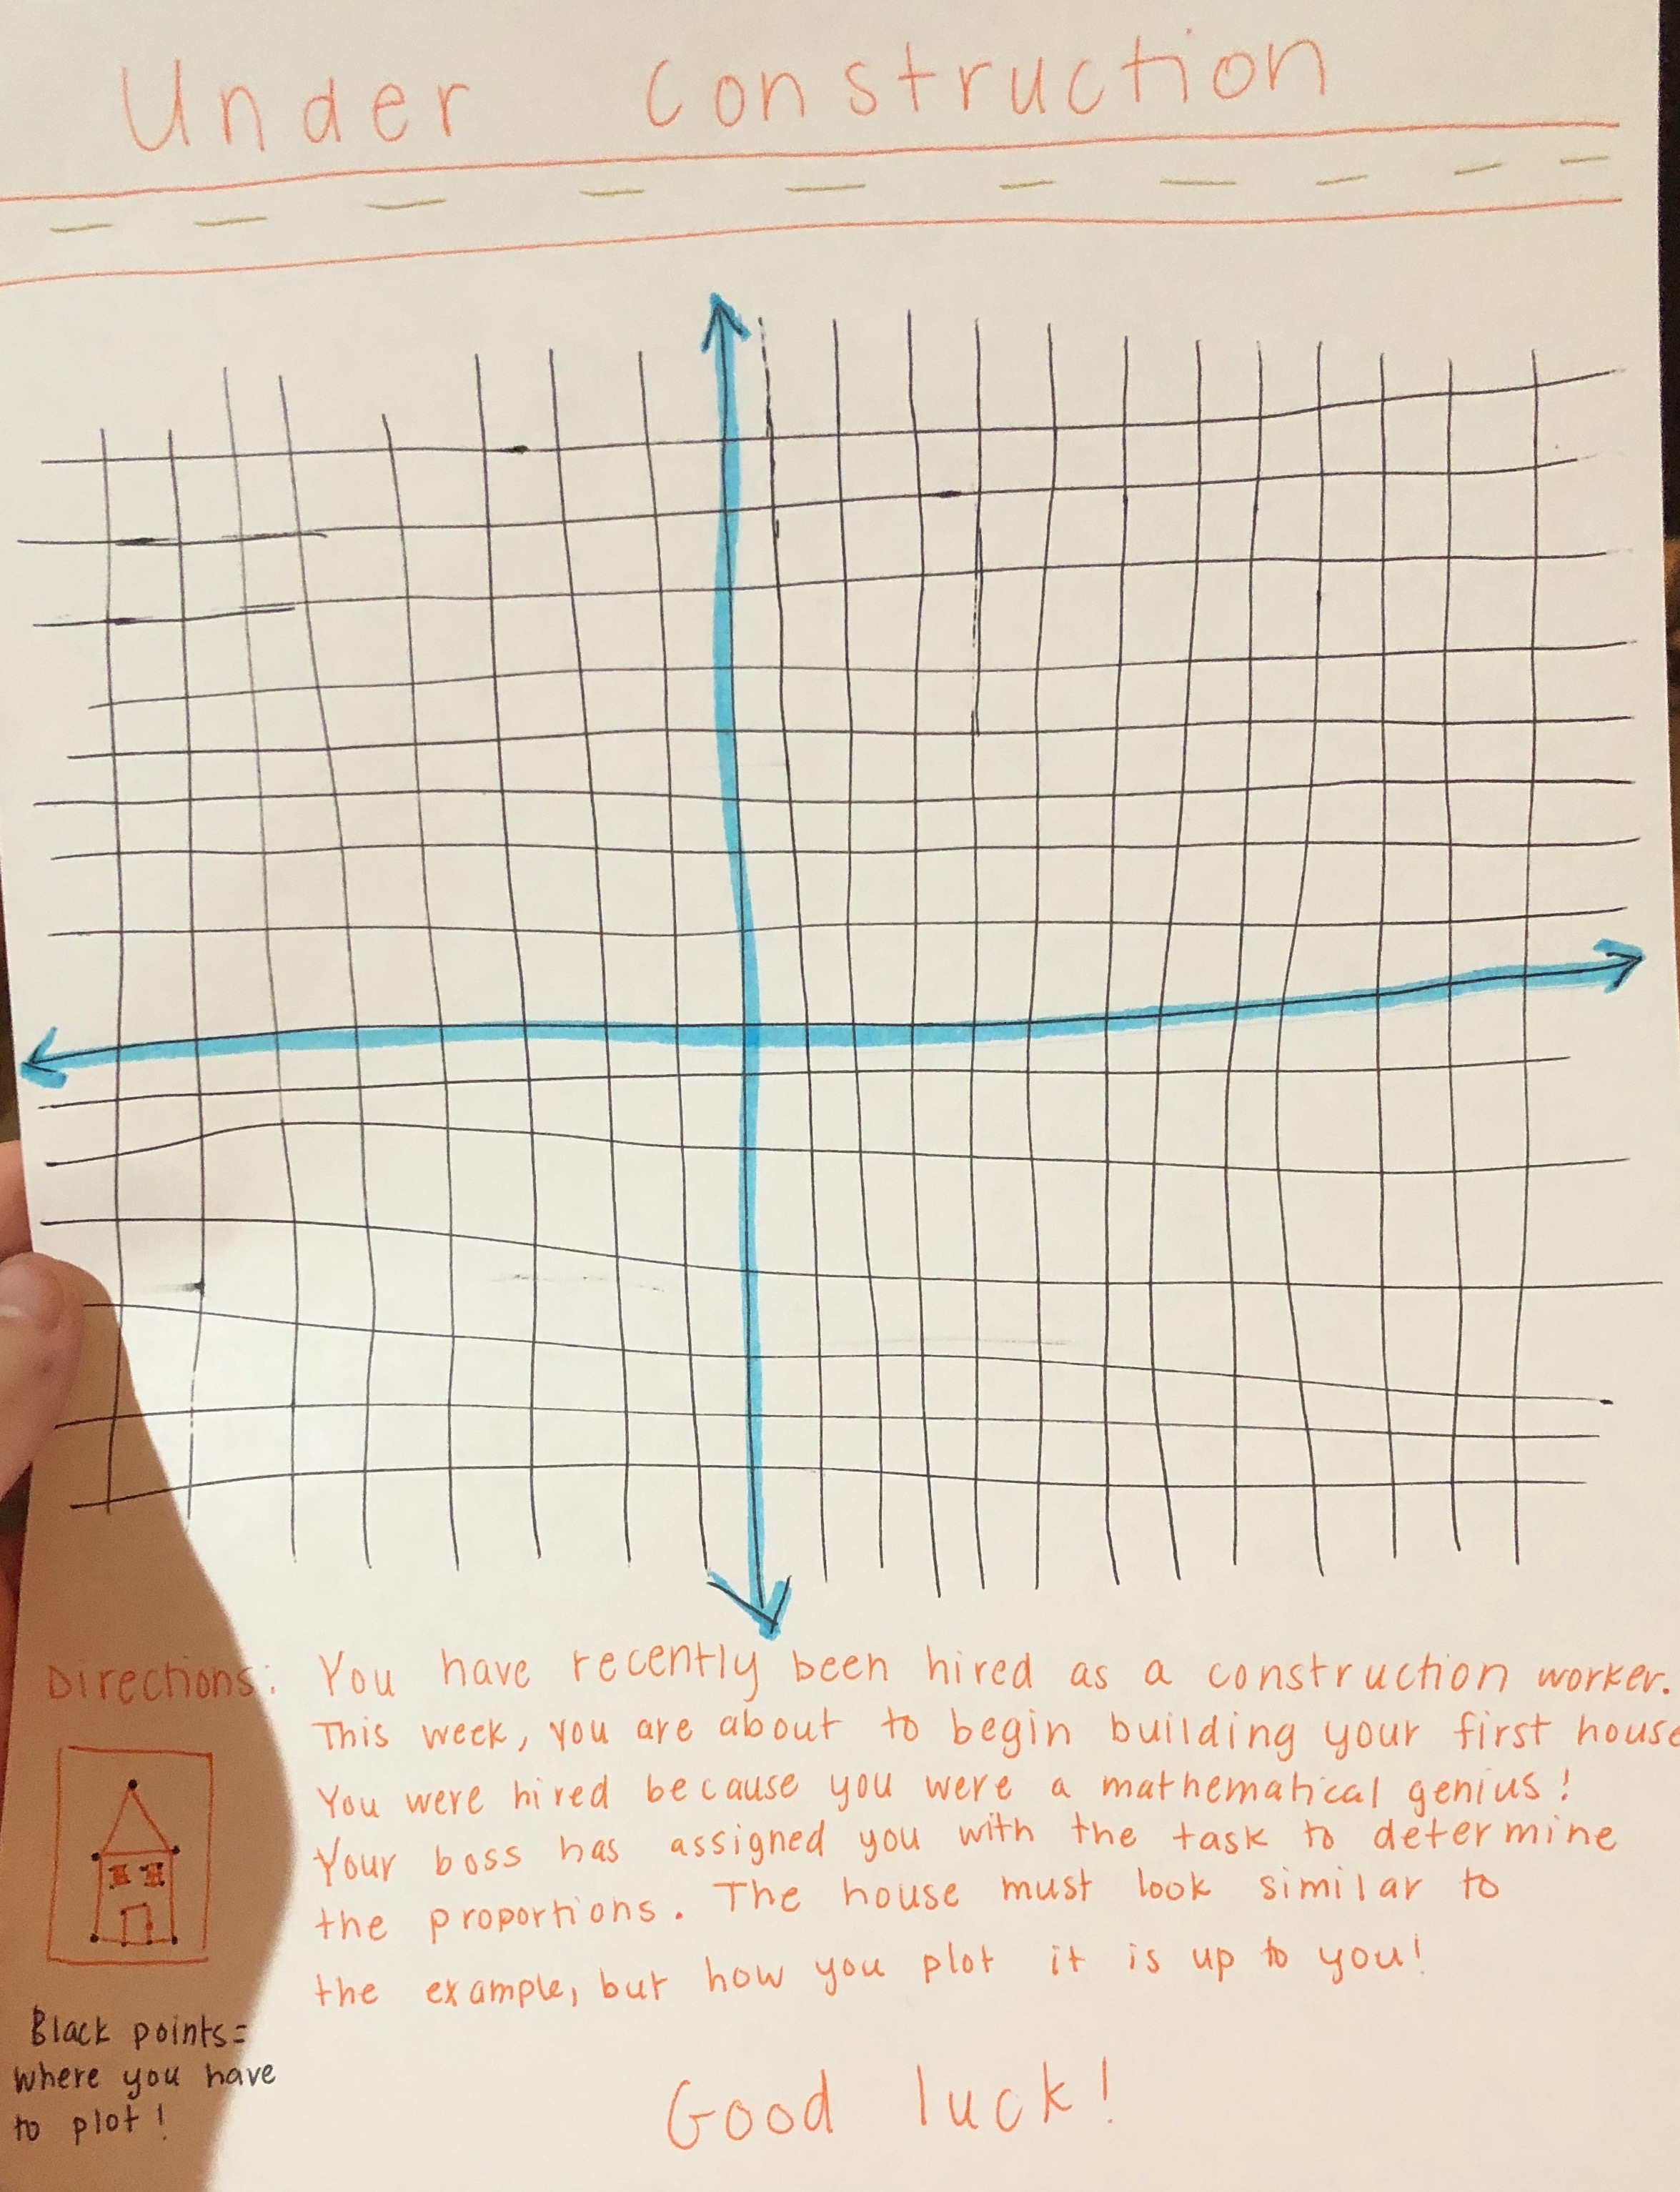 Under Construction
Directions: You have recently been hired as a construction worker.
This week, you are about to begin building your first house
You were hired because you were a mathematical genius!
Your boss has assigned you with the task to determine
the proportions. The house must look similar to
the example, but how you plot it is up to you!
Black points=
where you have
to plot!
Good luck!